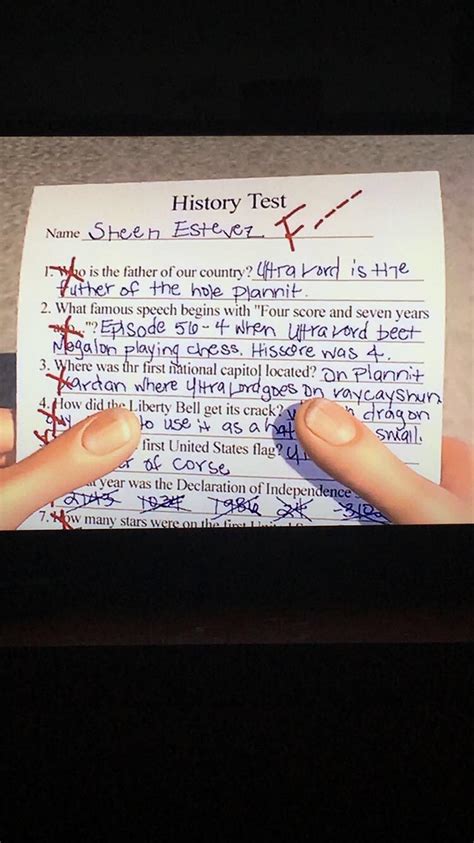 History Test
Name Sheen Estevez F----
1. Who is the father of our country? Ultra Lord is the
father of the hole plannit.
2. What famous speech begins with "Four score and seven years
..."? Episode 56-4 when Ultra Lord beet
Megalon playing chess. His score was 4.
3. Where was thr first national capitol located? On Plannit
where Ultra Lord goes on vaycayshun
4. How did the Liberty Bell get its crack? dragon
to use it as a
first United States flag?
of corse
year was the Declaration of Independence
1986 24
7. How many stars were on the first